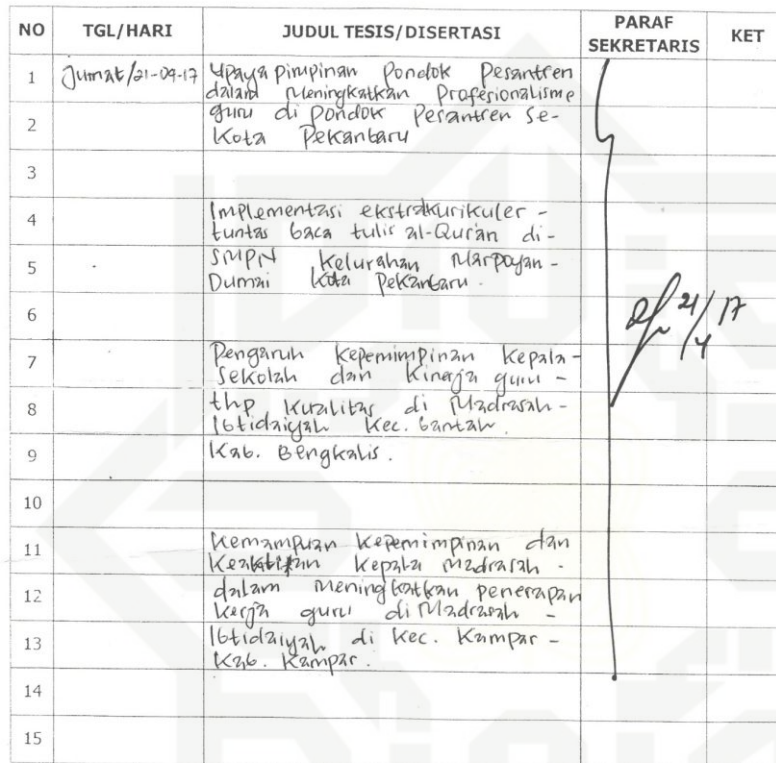 NO TGL/HARI JUDUL TESIS/DISERTASI PARAF SEKRETARIS KET
1 Jumat/21-04-17 Upaya pimpinan Pondok Pesantren
dalam Meningkatkan Profesionalisme
2 guru di Pondok Pesantren Se-
Kota Pekanbaru
3
4 Implementasi ekstrakurikuler -
tuntas baca tulis al-Qur'an di-
5 SMPN Kelurahan Marpoyan -
Dumai Kota Pekanbaru .
6
21/4 17
7 Pengaruh Kepemimpinan Kepala -
Sekolah dan Kinerja guru -
8 thp Kualitas di Madrasah -
Ibtidaiyah Kec. bantan .
9 Kab. Bengkalis .
10
11 Kemampuan Kepemimpinan dan
Keaktifan Kepala Madrasah -
12 dalam Meningkatkan penerapan
kerja guru di Madrasah -
13 Ibtidaiyah di Kec. Kampar -
Kab. Kampar .
14
15